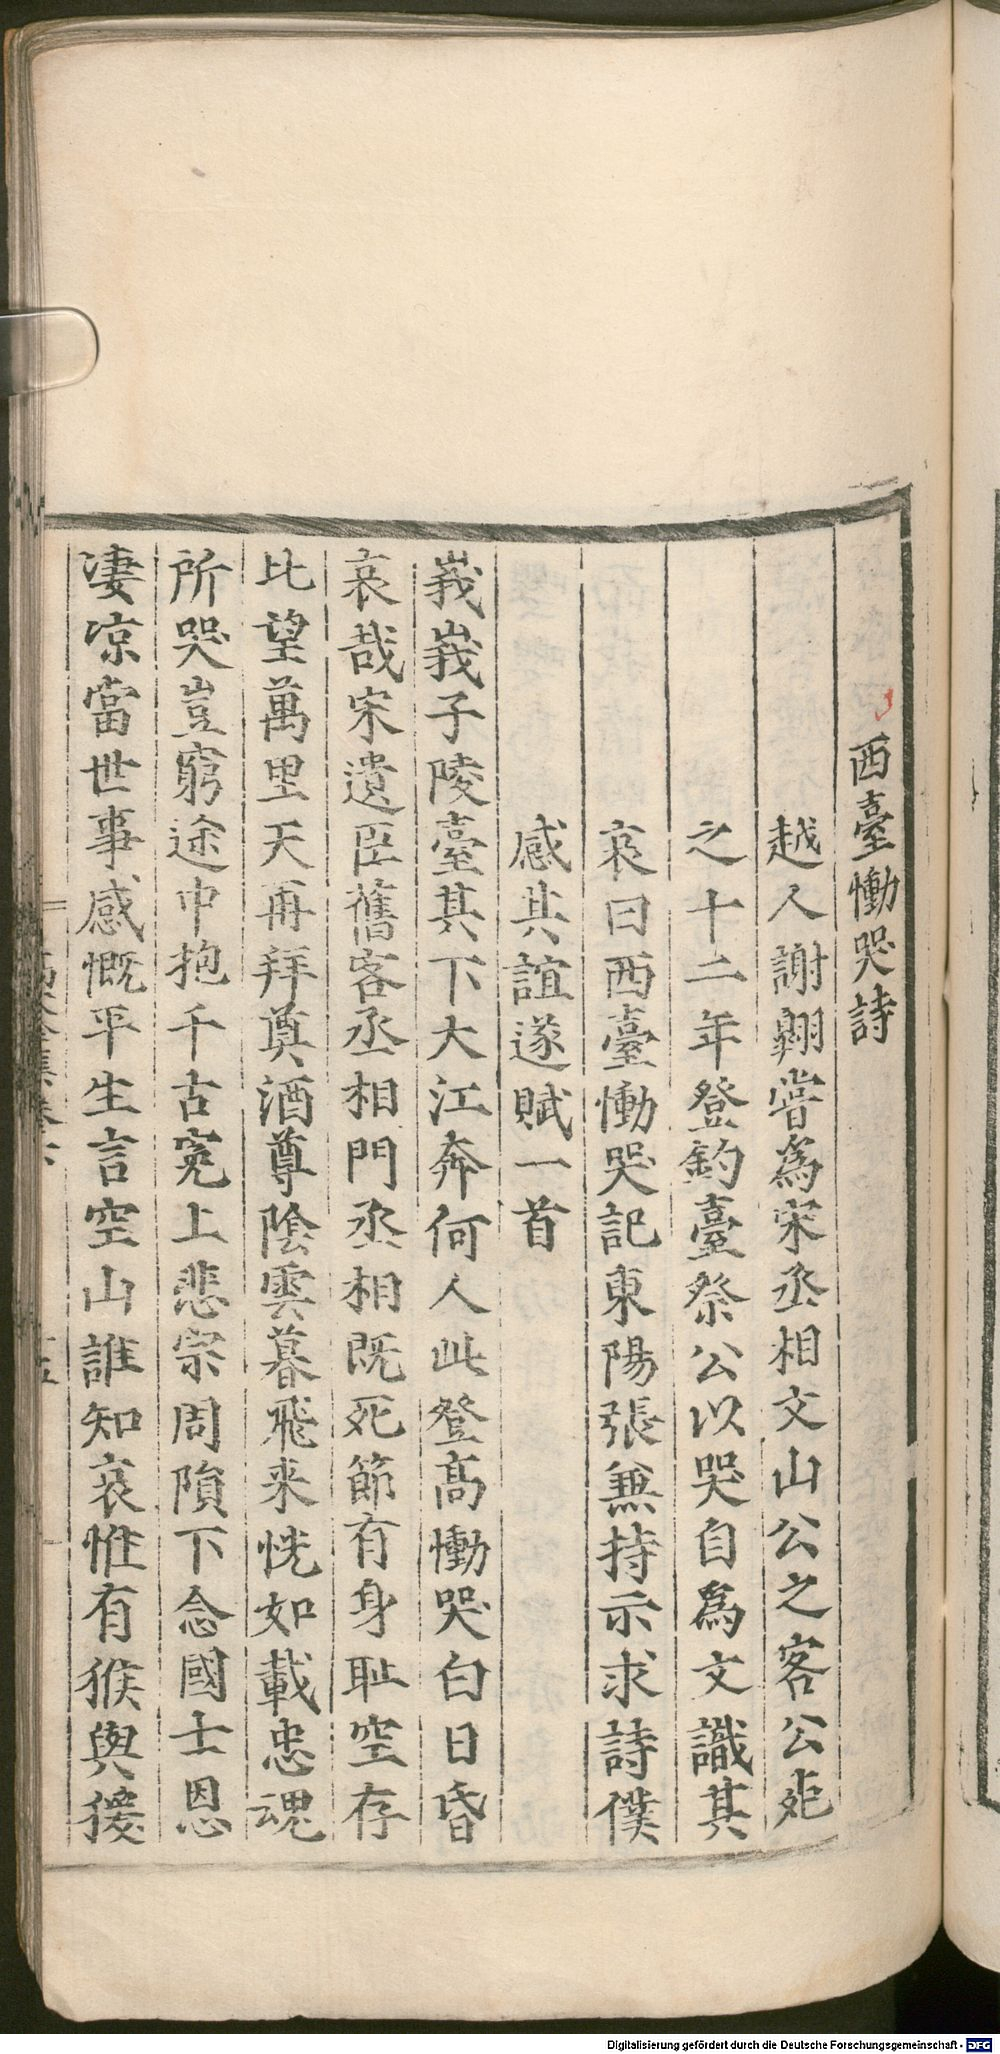 西臺慟哭詩
越人謝翶甞爲宋丞相文山公之客公死
之十二年登釣臺祭公以哭自爲文識其
哀曰西臺慟哭記東陽張兼持示求詩僕
感其誼遂賦一首
峩峩子陵臺其下大江奔何人此登高慟哭白日昏
哀哉宋遺臣舊客丞相門丞相既死節有身耻空存
北望萬里天再拜奠酒尊陰雲暮飛来恍如載忠魂
所哭豈窮途中抱千古寃上悲宗周隕下念國士恩
凄凉當世事感慨平生言空山誰知哀惟有猴與猨
Digitalisierung gefördert durch die Deutsche Forschungsgemeinschaft - DFG